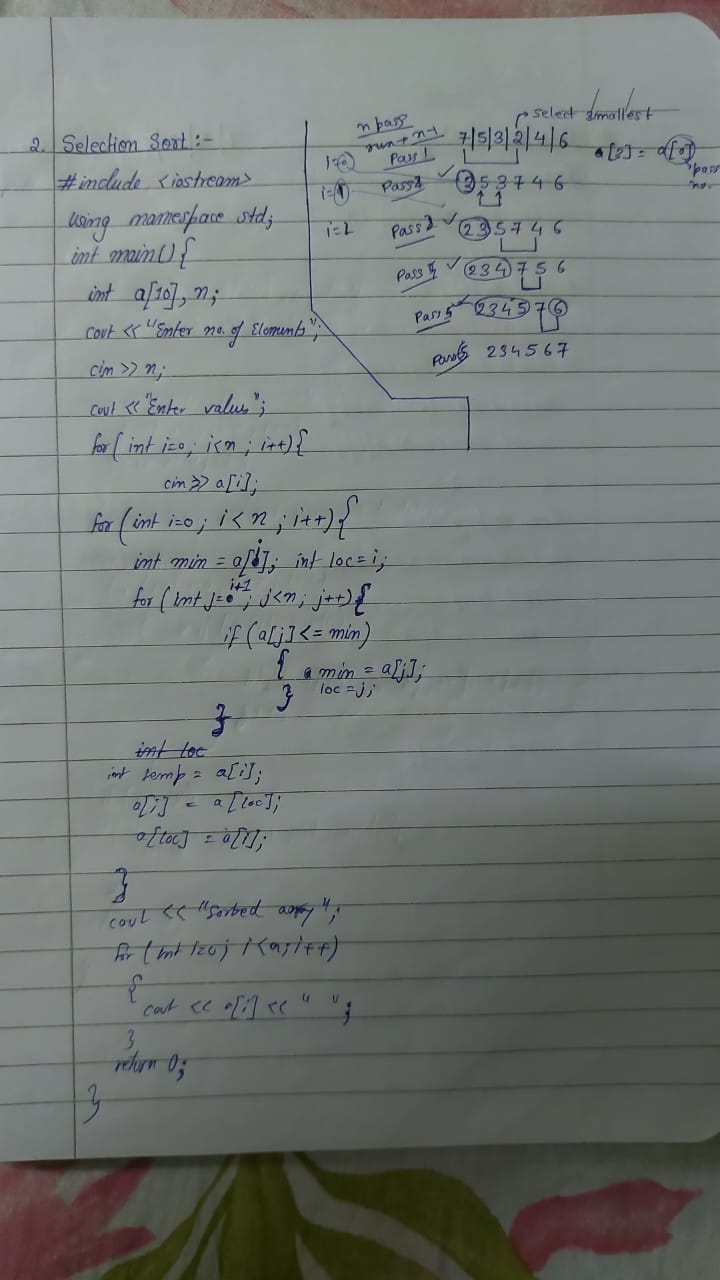 2. Selection Sort :-
#include <iostream>
using namespace std;
int main() {
int a[10], n;
cout << "Enter no. of Elements";
cin >> n;
cout << "Enter value";
for( int i=0; i<n ; i++){
cin >> a[i];
for (int i=0 ; i < n ; i++) {
int min = a[i]; int loc = i;
for (int j=i+1; j<n; j++) {
if (a[j] <= min)
{ min = a[j];
} loc = j;
}
int loc
int temp = a[i];
a[i] = a[loc];
a[loc] = a[i];
}
cout << "Sorted array";
for (int i=0; i<n; i++)
{
cout << a[i] << " ";
}
return 0;
}
n pass
run → n-1
select smallest
7|5|3|2|4|6
i=0 Pass 1
a[3] = a[0]
pass no.
i=1 Pass 2 2 5 3 7 4 6
i=2 Pass 2 3 5 7 4 6
Pass 2 3 4 7 5 6
Pass 5 2 3 4 5 7 6
Pass 2 3 4 5 6 7